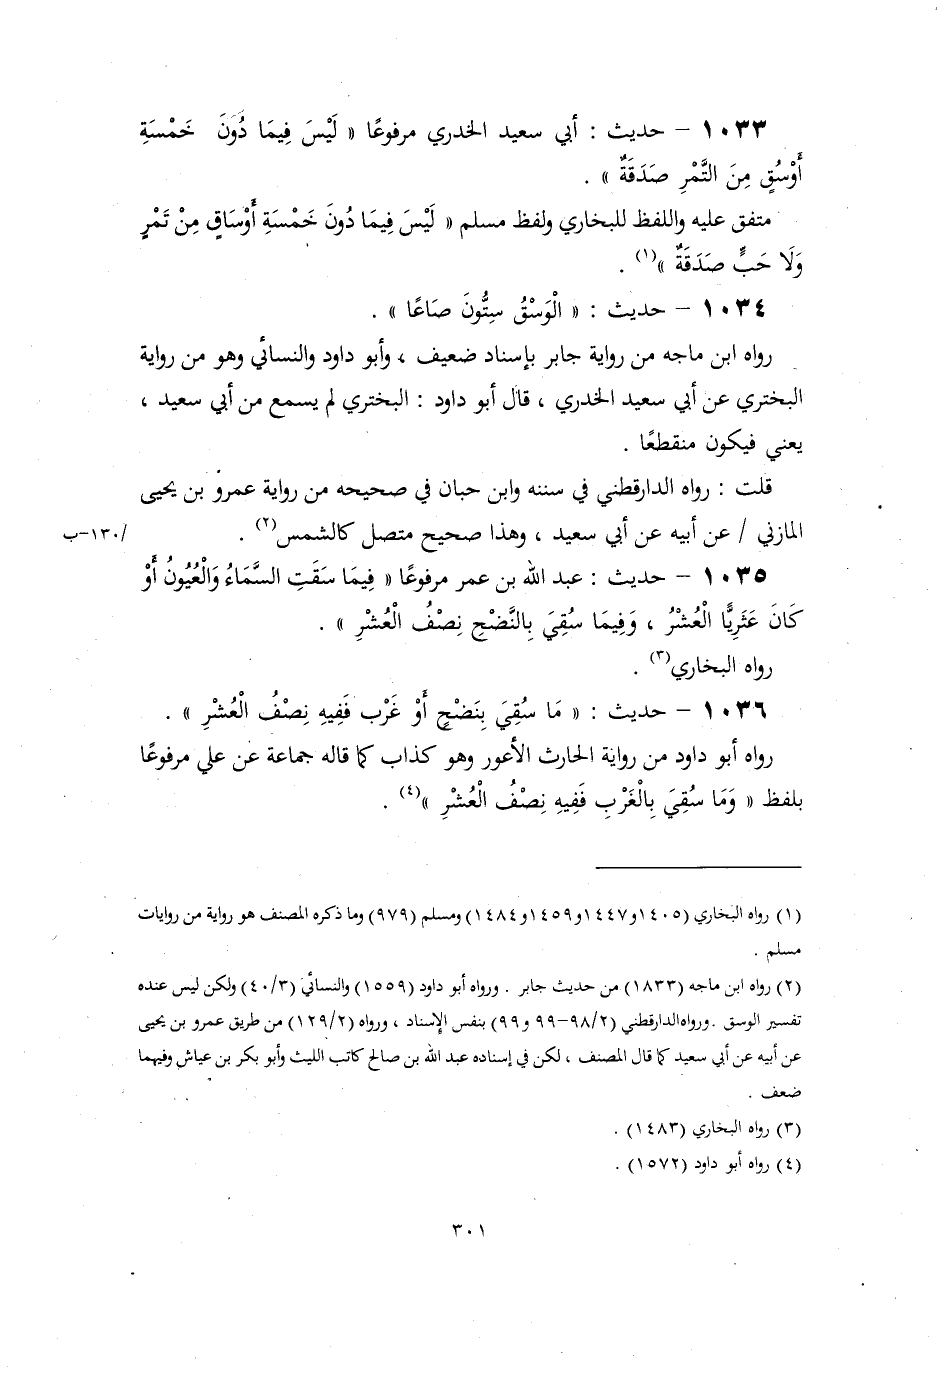 ١٠٣٣ – حديث : أبي سعيد الخدري مرفوعًا « لَيْسَ فِيمَا دُونَ خَمْسَةِ
أَوْسُقٍ مِنَ التَّمْرِ صَدَقَةٌ » .
متفق عليه واللفظ للبخاري ولفظ مسلم « لَيْسَ فِيمَا دُونَ خَمْسَةِ أَوْسَاقٍ مِنْ تَمْرٍ
وَلَا حَبٍّ صَدَقَةٌ »(١) .
١٠٣٤ – حديث : « الْوَسْقُ سِتُّونَ صَاعًا » .
رواه ابن ماجه من رواية جابر بإسناد ضعيف ، وأبو داود والنسائي وهو من رواية
البختري عن أبي سعيد الخدري ، قال أبو داود : البختري لم يسمع من أبي سعيد ،
يعني فيكون منقطعًا .
قلت : رواه الدارقطني في سننه وابن حبان في صحيحه من رواية عمرو بن يحيى
المازني / عن أبيه عن أبي سعيد ، وهذا صحيح متصل كالشمس(٢) . /١٣٠–ب
١٠٣٥ – حديث : عبد الله بن عمر مرفوعًا « فِيمَا سَقَتِ السَّمَاءُ وَالْعُيُونُ أَوْ
كَانَ عَثَرِيًّا الْعُشْرُ ، وَفِيمَا سُقِيَ بِالنَّضْحِ نِصْفُ الْعُشْرِ » .
رواه البخاري(٣) .
١٠٣٦ – حديث : « مَا سُقِيَ بِنَضْحٍ أَوْ غَرْب فَفِيهِ نِصْفُ الْعُشْرِ » .
رواه أبو داود من رواية الحارث الأعور وهو كذاب كما قاله جماعة عن علي مرفوعًا
بلفظ « وَمَا سُقِيَ بِالْغَرْبِ فَفِيهِ نِصْفُ الْعُشْرِ »(٤) .
(١) رواه البخاري (١٤٠٥ و١٤٤٧ و١٤٥٩ و١٤٨٤) ومسلم (٩٧٩) وما ذكره المصنف هو رواية من روايات
مسلم .
(٢) رواه ابن ماجه (١٨٣٣) من حديث جابر . ورواه أبو داود (١٥٥٩) والنسائي (٤٠/٣) ولكن ليس عنده
تفسير الوسق . ورواه الدارقطني (٩٨/٢–٩٩ و٩٩) بنفس الإسناد ، ورواه (١٢٩/٢) من طريق عمرو بن يحيى
عن أبيه عن أبي سعيد كما قال المصنف ، لكن في إسناده عبد الله بن صالح كاتب الليث وأبو بكر بن عياش وفيهما
ضعف .
(٣) رواه البخاري (١٤٨٣) .
(٤) رواه أبو داود (١٥٧٢) .
٣٠١